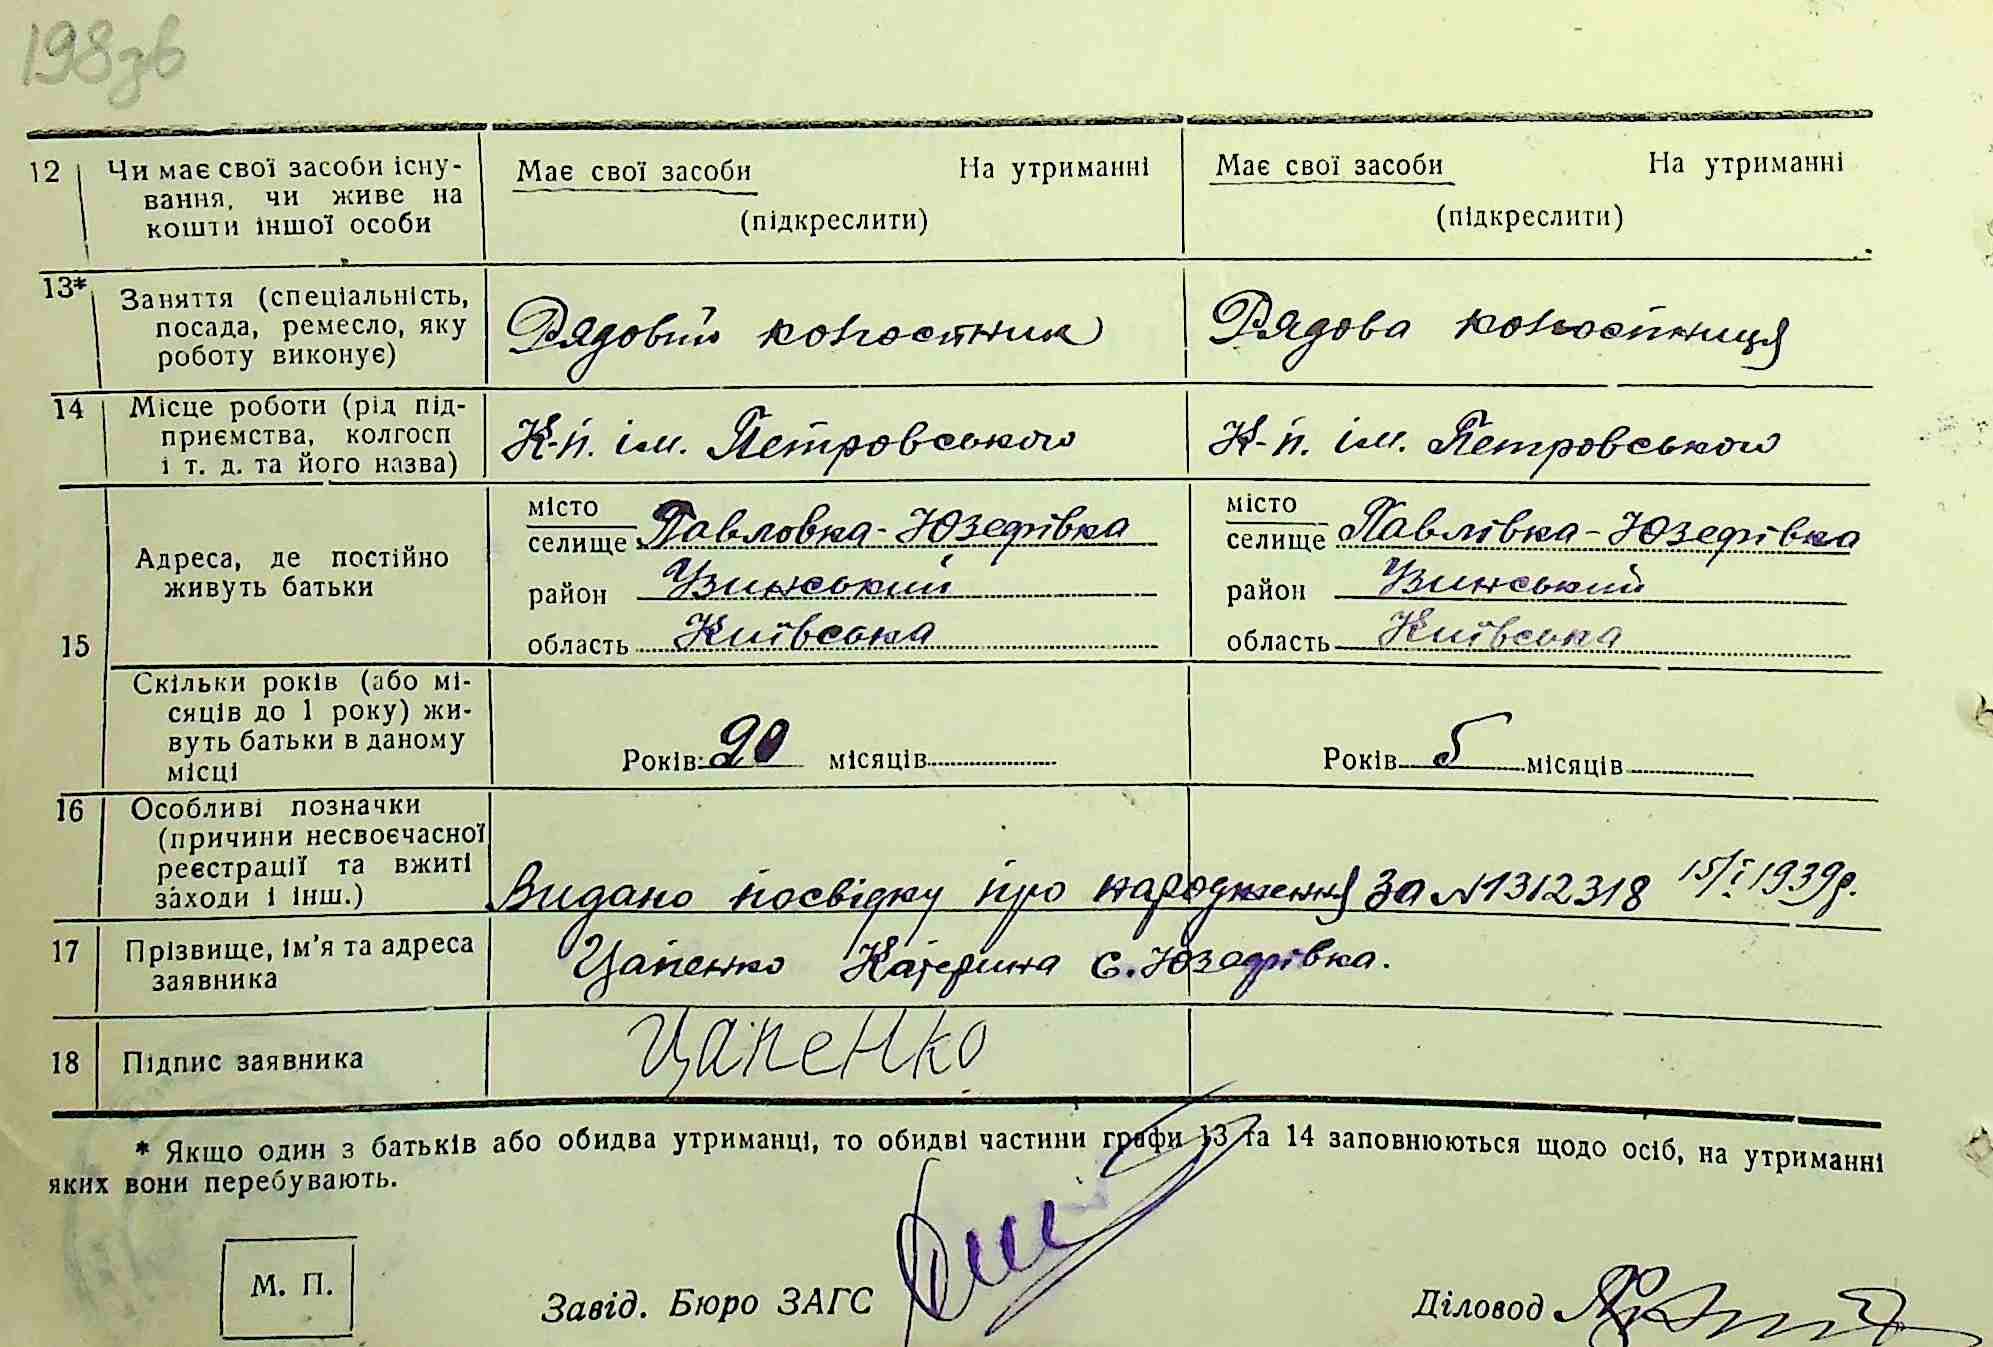 198зв
12 Чи має свої засоби існу-
вання, чи живе на
кошти іншої особи
Має свої засоби На утриманні
(підкреслити)
Має свої засоби На утриманні
(підкреслити)
13* Заняття (спеціальність,
посада, ремесло, яку
роботу виконує)
Рядовий колгоспник
Рядова колгоспниця
14 Місце роботи (рід під-
приємства, колгосп
і т. д. та його назва)
К-п. ім. Петровського
К-п. ім. Петровського
15
Адреса, де постійно
живуть батьки
місто
селище Павловка-Юзефівка
район Узинський
область Київська
місто
селище Павлівка-Юзефівка
район Узинський
область Київська
Скільки років (або мі-
сяців до 1 року) жи-
вуть батьки в даному
місці
Років 20 місяців
Років 5 місяців
16 Особливі позначки
(причини несвоєчасної
реєстрації та вжиті
заходи і інш.)
Видано посвідку про народження за №1312318 15/I 1939р.
17 Прізвище, ім'я та адреса
заявника
Цапенко Катерина с. Юзефівка.
18 Підпис заявника
Цапенко
* Якщо один з батьків або обидва утриманці, то обидві частини графи 13 та 14 заповнюються щодо осіб, на утриманні
яких вони перебувають.
М. П.
Завід. Бюро ЗАГС
Діловод